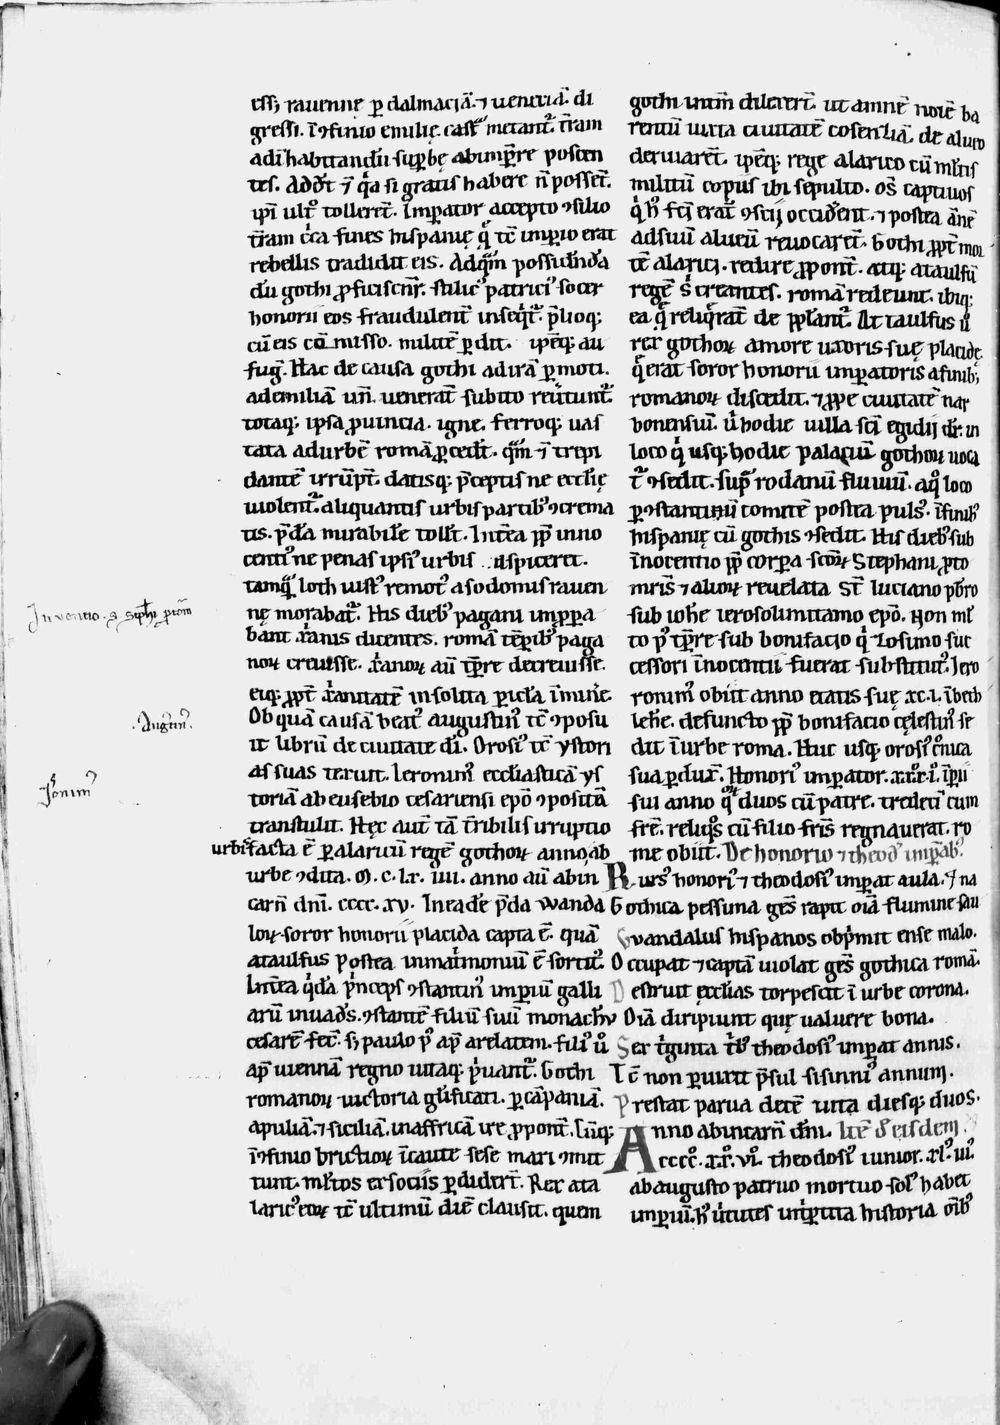 essȝ rauennę ꝑ dalmaciā. ⁊ ueneciā. di
gressi. ī ꝯfinio emilię. castᷓ metantᷣ. t̄ram
ad īhabitandū suꝑbę ab impe͛re poscen
tes. Addūt ⁊ q̇a si gratis habere n̄ possēt.
ip̄i ultᷓ tollerēt. Imꝑator accepto ꝯsilio
t̄ram c̄ca fines hispanię q̄ tc̄ impio erat
rebellis tradidit eis. Ad quā possidēda
dū gothi ꝓficiscunᷣ. stilicᷤ patriciᷤ socer
honorii eos fraudulent̄ inseqᷣtᷣ. p̄lioqꝫ
cū eis cōmisso. militē ꝑdit. ip̄eqꝫ au
fugᷣ. Hac de causa gothi ad irā ꝑmoti.
ad emiliā un̄ uenerāt subito reutuntᷣ.
totāqꝫ ipsā ꝓuinciā. igne. ferroqꝫ uas
tata ad urbē romā ꝓcedūt. quā ⁊ trepi
dantē irrūpt̄. datisqꝫ p̄ceptis ne ecclię
uiolentᷣ. aliquantis urbis partibᷤ ꝯcrema
tis. p̄da mirabilē tollūt. Int̄ea pp̄ inno
centiᷤ ne penas ipsiᷤ urbis aspiceret.
tamq̄ loth iustᷤ remotᷤ a sodomis rauen
nę morabatᷣ. His diebᷤ pagani impᷣpa
bant xp̄ianis dicentes. romā tēꝑibᷤ paga
noꝝ creuisse. xp̄ianoꝝ aū tꝑe decreuisse.
eiqꝫ ꝓpt̄ xp̄ianitatē insolita pericla īminē.
Ob quā causā beatᷤ augustinᷤ tc̄ ꝯposu
it librū de ciuitate dī. Orosiᷤ tc̄ ystori
as suas texuit. Ieronimᷤ ecclīasticā ys
toriā ab eusebio cesariensi ep̄o ꝯpositā
transtulit. Hęc aūt tā t̄ribilis irruptio
urbis facta ē ꝑ alaricū regē gothoꝝ anno ab
urbe ꝯdita. M. c. lx. iiii. anno aū ab in
carn̄ dn̄i. cccc. xv. In eadē p̄da wanda
loꝝ soror honorii placida capta ē. quā
ataulfus postea in matᷣmoniū ē sortitᷤ.
Int̄ea qᷣdā pᷣnceps ꝯstantinᷤ imꝑiū galli
arū inuadēs. ꝯstantē filiū suū monachū
cesarē fec̄. sꝫ paulo pᷤ apᷣ arelatem. filiᷤ ū
apᷣ uiennā regno uitaqꝫ pᷣuantᷣ. Gothi
romanoꝝ uictoria gl̄ificati. ꝑ cāpaniā.
apuliā. ⁊ siciliā. in affricā ire ꝓpont̄. sūqꝫ
ī ꝯfinio brictioꝝ īcaute sese mari ꝯmit
tunt. ml̄tos ex sociis ꝑdidert̄. Rex ala
laricᷤ eoꝝ tc̄ ultimū diē clausit. quem
gothi intm̄ dilexert̄. ut amnē noīe ba
rentū iuxta ciuitatē cosentiā. de alueo
deriuarēt. ip̄eqꝫ rege alarico cū ml̄tis
militū copiis ibi sepulto. oēs captiuos
qᷣ hᷤ fcī erāt ꝯscii occidērent. ⁊ postea anē
ad suū alueū reuocarēt. Gothi ꝓpt̄ mor
tē alarici. redire ꝓponūt. atqꝫ ataulfū
regē s̄ creantes. romā redeunt. ibiqꝫ
ea q̄ reliqᷣrāt de ꝓplantᷣ. At taulfus ū
rex gothoꝝ amore uxoris suę placidę
q̄ erat soror honorii impatoris a finibꝫ
romanoꝝ discedit. ⁊ ꝓpe ciuitatē nar
bonensiū. ū hodie uilla sc̄i egidii dr̄. in
loco qᷣ usqꝫ hodie palaciū gothoꝝ uoca
tᷣ ꝯsedit. supᷓ rodanū fluuiū. a qᷤ loco
ꝑ ꝯstantium comitē postea pulsᷤ. ī finibᷤ
hispanię cū gothis ꝯsedit. His diebᷤ sub
īnocentio pp̄ corꝑa sc̄oꝝ Stephani ꝓto
mr̄is ⁊ alioꝝ reuelata st̄ luciano pb̄ro
sub ioh̄e ierosolimitano ep̄o. Non ml̄
to pᷤ tꝑre sub bonifacio qᷣ Zosimo suc
cessori īnocentii fuerat substitutᷤ. Iero
ronimᷤ obiit anno etatis suę xc. i. ī beth
leh̄e. defuncto pp̄ bonifacio cęlestinᷤ se
dit ī urbe roma. Huc usqꝫ orosiᷤ cᷣnica
sua ꝑduxᷣ. Honoriᷤ imꝑator. xxx. i. impii
sui anno qᷤꝝ duos cū patre. tredecī cum
fr̄e. reliqᷤs cū filio fr̄is regnauerat. ro
me obiit. De honorio ⁊ theodᷤ imꝑabᷤ.
Rursᷤ honoriᷤ ⁊ theodosiᷤ imperat aula. ⁊ na
Gothica pessuna gēs rapit oīa flumine sau
Gwandalus hispanos obpᷣmit ense malo.
Occupat ⁊ captā uiolat gēs gothica romā.
Destruit eccl̄ias torpescit ī urbe corona.
Oīa diripiunt quę ualuere bona.
Ser tᷣginta tᷣbᷤ theodosiᷤ imperat annis.
Tc̄ non ꝑuixit p̄sul sisinniᷤ annum.
Prestat parua decē uita diesqꝫ duos.
Anno ab incarn̄ dn̄i. Itē de eisdem.
cccc. xx. vi. theodosiᷤ iunior. xl. ui.
ab augusto patruo mortuo solᷤ habet
impiū. hᷤ uᷣtutes intꝑtita historia oībᷤ
Inuentio. s. Steph̄i ꝓtom̄
. Augustinᷤ.
Ieronimᷤ